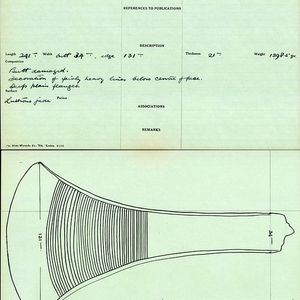 REFERENCES TO PUBLICATIONS
DESCRIPTION
Length 241 Width butt 34 edge 131 Thickness 21 Weight 1398.5 gr
Composition
Butt damaged.
Decoration of fairly heavy lines below centre of face.
Deep plain flanges
Surface
Lustrous Patina
ASSOCIATIONS
REMARKS
131
34